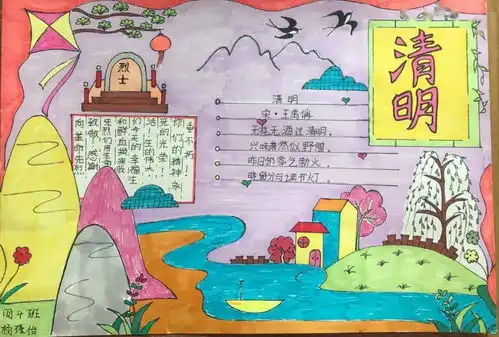 清明
烈士
向革命先烈
致敬！感谢
先烈们用生命
和鲜血换来我
们今天的幸福生
活！生的伟大
死的光荣！
你们的精神永
垂不朽！
清明
宋·王禹偁
无花无酒过清明，
兴味萧然似野僧。
昨日邻家乞新火，
晓窗分与读书灯。
四4班